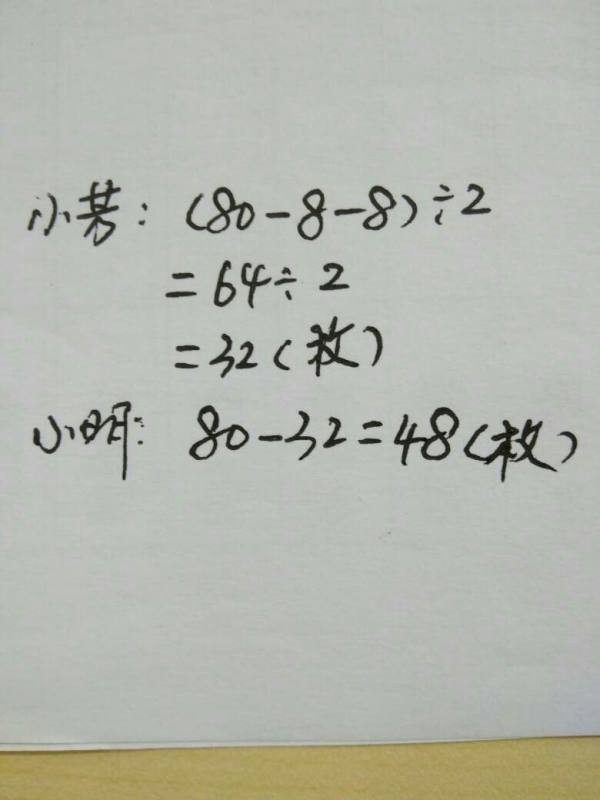 小芳：(80-8-8)÷2
=64÷2
=32(枚)
小明：80-32=48(枚)